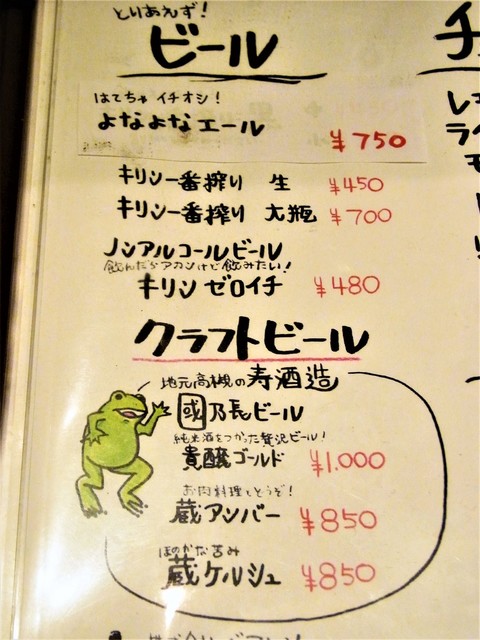 とりあえず!
ビール
はてちゅ イチオシ!
よなよなエール ¥750
キリン一番搾り 生 ¥450
キリン一番搾り 大瓶 ¥700
ノンアルコールビール
飲んだらアカンけど飲みたい!
キリン ゼロイチ ¥480
クラフトビール
地元高槻の寿酒造
國乃長ビール
純米酒をつかった贅沢ビール!
貴醸ゴールド ¥1.000
お肉料理とどうぞ!
蔵アンバー ¥850
ほのかな苦み
蔵ケルシュ ¥850